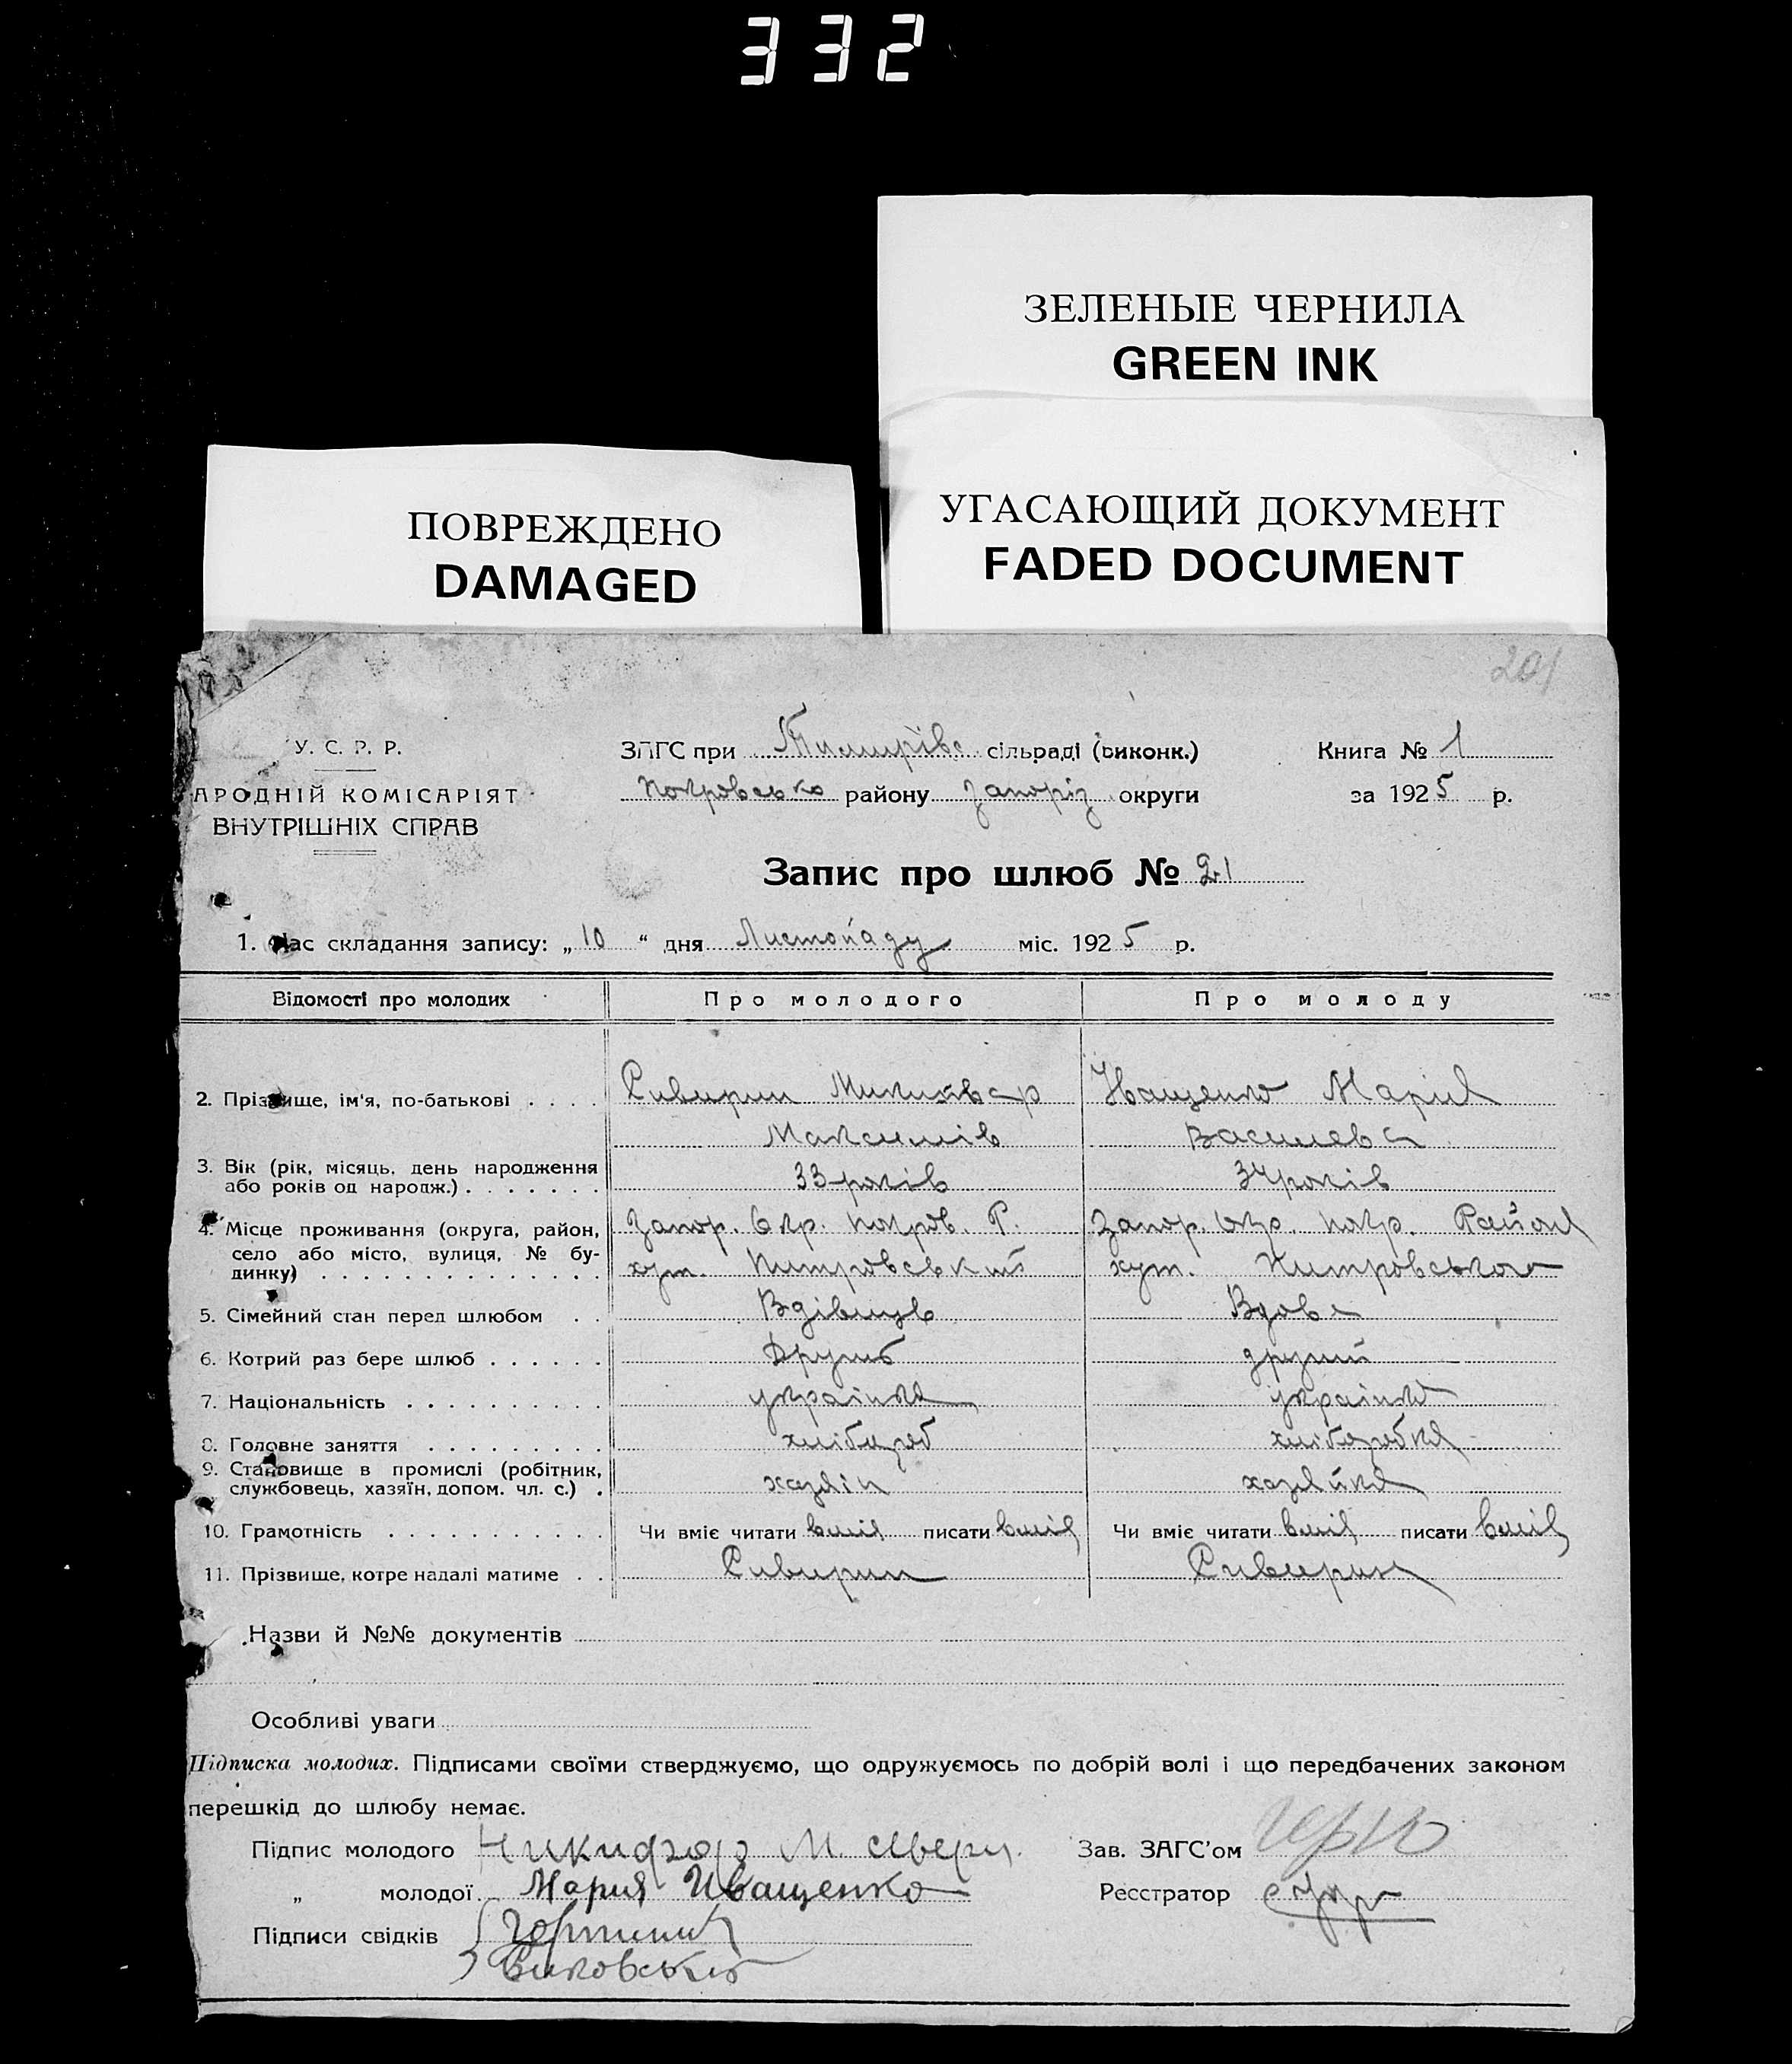 332
ЗЕЛЕНЫЕ ЧЕРНИЛА
GREEN INK
ПОВРЕЖДЕНО
DAMAGED
УГАСАЮЩИЙ ДОКУМЕНТ
FADED DOCUMENT
201
У. С. Р. Р.
АРОДНІЙ КОМІСАРІЯТ
ВНУТРІШНІХ СПРАВ
ЗАГС при сільраді (виконк.)
Покровсько району Запоріз округи
Книга № 1
за 1925 р.
Запис про шлюб № 21
1. Час складання запису: „ 10 “ дня Листопаду міс. 1925 р.
Відомості про молодих Про молодого Про молоду
2. Прізвище, ім'я, по-батькові . . . . Сивирин Іващенко Марія
Максимів Василева
3. Вік (рік, місяць, день народження
або років од народж.) . . . . . . . 33 років 34 років
4. Місце проживання (округа, район, Запор. Окр. Покров. Р. Запор. Окр. Покр. Район
село або місто, вулиця, № бу-
динку) . . . . . . . . . . . . . хут. хут.
5. Сімейний стан перед шлюбом . . Вдівець Вдова
6. Котрий раз бере шлюб . . . . . . другий
7. Національність . . . . . . . . . . українка українка
8. Головне заняття . . . . . . . . . хлібороб хліборобка
9. Становище в промислі (робітник,
службовець, хазяїн, допом. чл. с.) . хазяін хазяйка
10. Грамотність . . . . . . . . . . . Чи вміє читати вмія писати вмія Чи вміє читати вмія писати вмія
11. Прізвище, котре надалі матиме . . Сивирин Сивирин
Назви й №№ документів
Особливі уваги
Підписка молодих. Підписами своїми стверджуємо, що одружуємось по добрій волі і що передбачених законом
перешкід до шлюбу немає.
Підпис молодого Никифор М. Зав. ЗАГС'ом
„ молодої Мария Иващенко Реєстратор
Підписи свідків